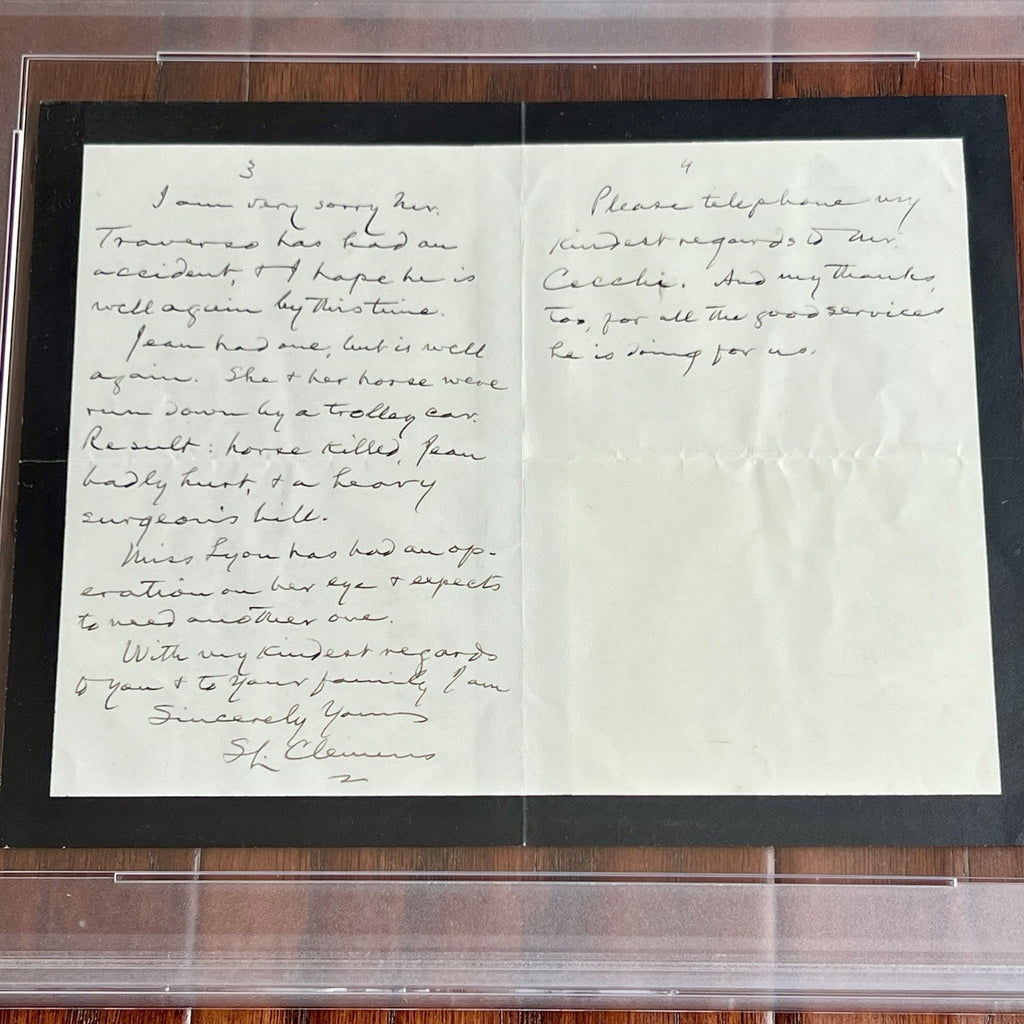 3
I am very sorry Mr.
Traverso has had an
accident, & I hope he is
well again by this time.
Jean had one, but is well
again. She & her horse were
run down by a trolley car.
Result: horse killed, Jean
badly hurt, & a heavy
surgeon's bill.
Miss Lyon has had an op-
eration on her eye & expects
to need another one.
With my kindest regards
to you & to your family I am
Sincerely Yours
SL. Clemens
4
Please telephone my
kindest regards to Mr.
Cecchi. And my thanks,
too, for all the good services
he is doing for us.